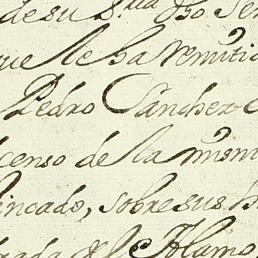 de su
que le ha remitid
Pedro Sanchez
censo de la mism
incado, sobre sus b
Alamo